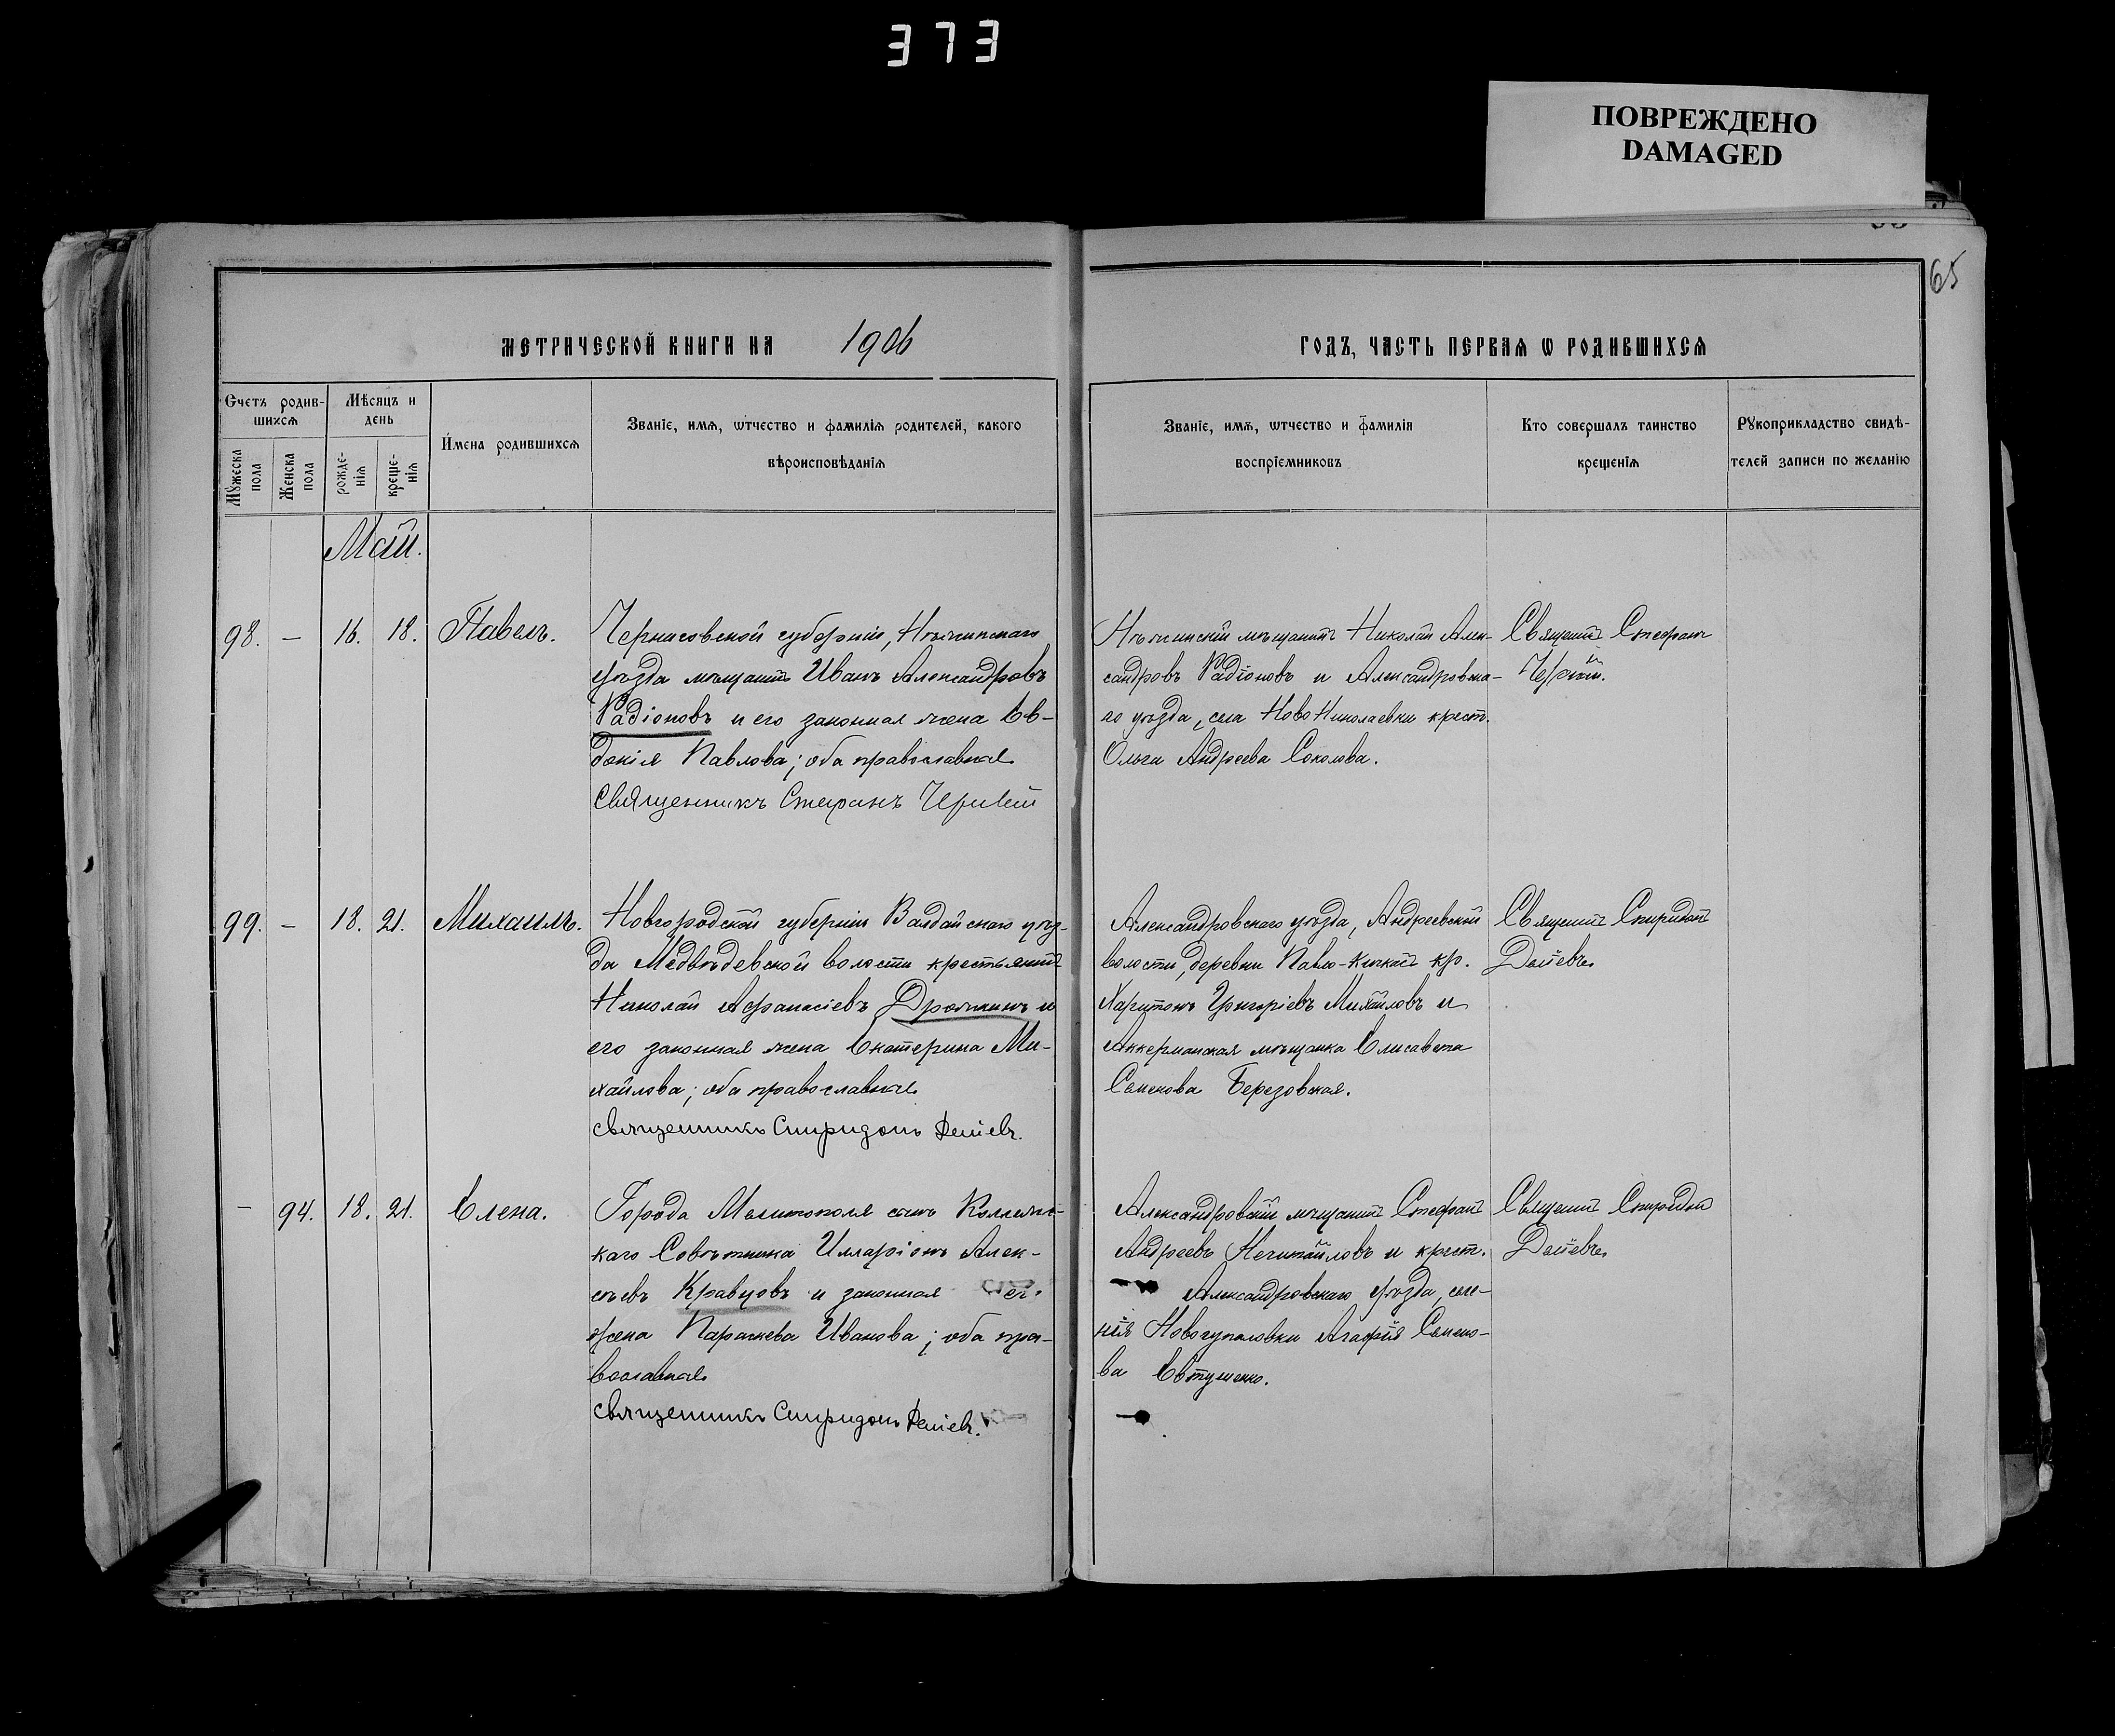 373
ПОВРЕЖДЕНО
DAMAGED
65
МЕТРИЧЕСКОЙ КНИГИ НА 1906
ГОДЪ, ЧАСТЬ ПЕРВАЯ Ѡ РОДИВШИХСЯ
Счетъ родив-
шихся
Мѣсяцъ и
день
Мужеска
пола
Женска
пола
рожде-
нія
креще-
нія
Имена родившихся
Званіе, имя, ѡтчество и фамилія родителей, какого
вѣроисповѣданія
Званіе, имя, ѡтчество и фамилія
воспріемниковъ
Кто совершалъ таинство
крещенія
Рукоприкладство свидѣ-
телей записи по желанію
Май.
98. — 16. 18. Павелъ.
Черниговской губерніи, Нѣжинскаго
уѣзда мѣщанинъ Иванъ Александровъ
Радіоновъ и его законная жена Ев-
докія Павлова; оба православные
Священникъ Стефанъ
Нѣжинскій мѣщанинъ Николай Алек-
сандровъ Радіоновъ и Александровска-
го уѣзда, села НовоНиколаевки крест.
Ольга Андреева Соколова.
Священ. Стефанъ
99. — 18. 21. Михаилъ.
Новгородской губерніи Валдайскаго уѣз-
да Медвѣдевской волости крестьянинъ
Николай Афанасіевъ Дрожжинъ и
его законная жена Екатерина Ми-
хайлова; оба православные
Священникъ Спиридонъ
Александровскаго уѣзда, Андреевской
волости, деревни Павло-Кичкасъ кр.
Харитонъ Григоріевъ Михайловъ и
Аккерманская мѣщанка Елисавета
Семенова Березовская.
Священ. Спиридон
— 94. 18. 21. Елена.
Города Мелитополя сынъ Коллежс-
каго Совѣтника Илларіонъ Алек-
сѣевъ Кравцовъ и законная его
жена Параскева Иванова; оба пра-
вославные
Священникъ Спиридонъ
Александровскій мѣщанинъ Стефанъ
Андреевъ Нечипайловъ и крест.
Александровскаго уѣзда, селе-
нія Новогупаловки Агафія Семено-
ва Евтушенко.
Священ. Спиридон